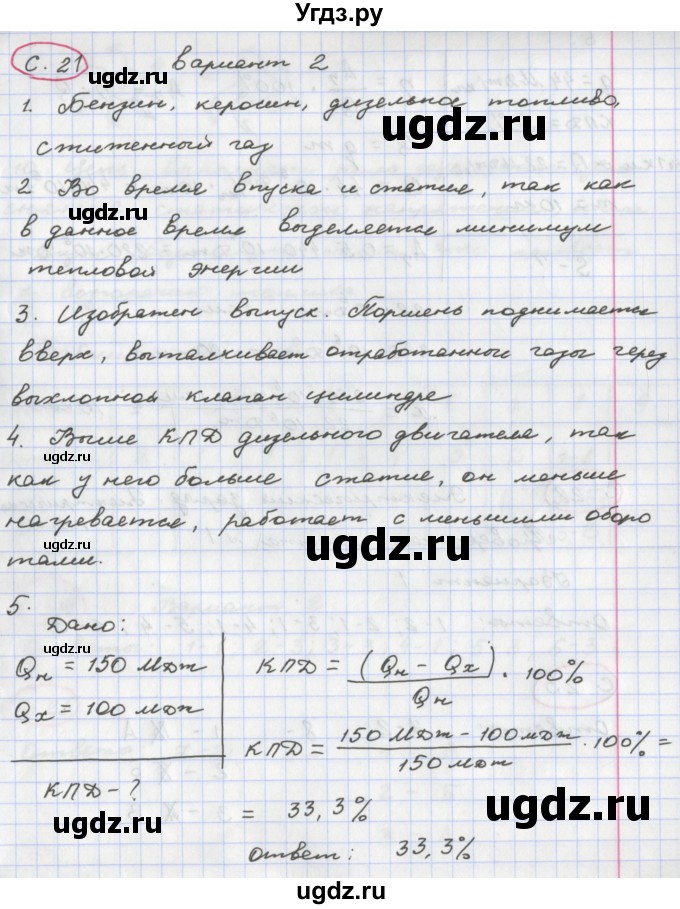 Угдз.ру
С. 21 вариант 2
1. Бензин, керосин, дизельное топливо,
сжиженный газ
2 Во время впуска и сжатие, так как
в данное время выделяется минимум
тепловой энергии
3. Изображен выпуск. Поршень поднимается
вверх, выталкивает отработанные газы через
выхлопной клапан цилиндре
4. Выше КПД дизельного двигателя, так
как у него больше сжатие, он меньше
нагревается, работает с меньшими оборо
тами.
5.
Дано:
Qн = 150 МДж
Qx = 100 мДж
КПД - ?
КПД = (Qн - Qx) / Qн · 100%
КПД = 150 МДж - 100 мДж / 150 мДж · 100% =
= 33,3%
ответ: 33,3%
ugdz.ru
ugdz.ru
ugdz.ru
ugdz.ru
ugdz.ru
ugdz.ru
ugdz.ru
ugdz.ru
ugdz.ru
ugdz.ru